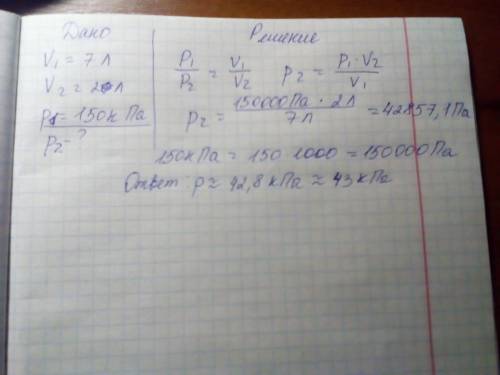 Дано
V₁ = 7 л
V₂ = 2 л
p₁ = 150 кПа
p₂ - ?
Решение
P₁/P₂ = V₁/V₂   p₂ = p₁ · V₂ / V₁
p₂ = 150000 Па · 2 л / 7 л = 42857,1 Па
150 кПа = 150 · 1000 = 150000 Па
Ответ: p ≈ 42,8 кПа ≈ 43 кПа